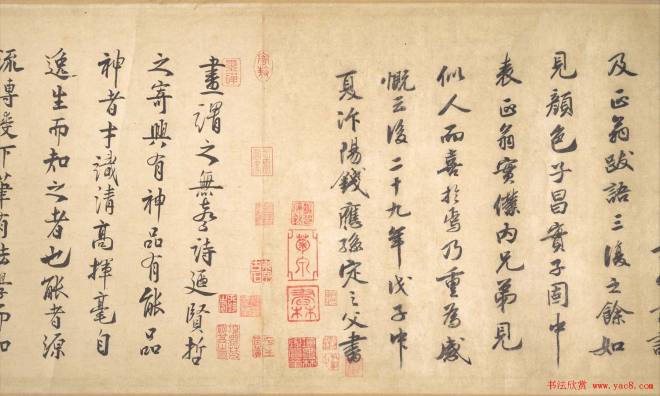 及正翁跋語三復之餘如
見顔色子昌實子固中
表正翁實僕内兄弟見
似人而喜於焉乃重為感
慨云後二十九年戊子中
夏汴陽錢應孫定之父書
畫謂之無聲詩廼賢哲
之寄興有神品有能品
神者才識清高揮毫自
逸生而知之者也能者源
流傳授下筆有法學而知
书法欣赏@www.yac8.com